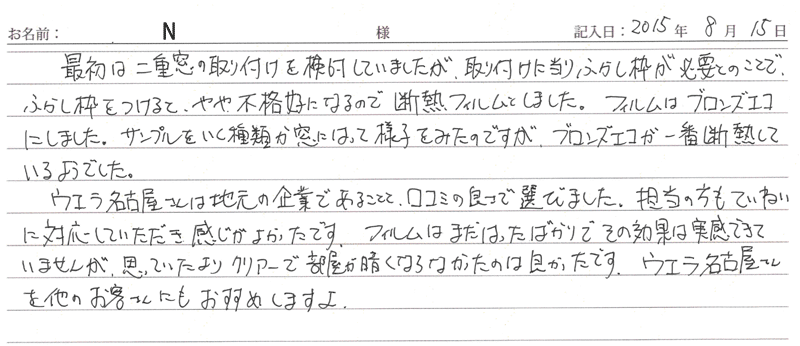 お名前： N 様 記入日：2015年 8月 15日
最初は二重窓の取り付けを検討していましたが、取り付けに当り、ふかし枠が必要とのことで、
ふかし枠をつけると、やや不格好になるので断熱フィルムとしました。フィルムはブロンズエコ
にしました。サンプルをいく種類か窓にはって様子をみたのですが、ブロンズエコが一番断熱して
いるようでした。
ウエラ名古屋さんは地元の企業であることと、口コミの良さで選びました。担当の方もていねい
に対応していただき感じがよかったです。フィルムはまだはったばかりでその効果は実感できて
いませんが、思っていたよりクリアーで部屋が暗くならなかったのは良かったです。ウエラ名古屋さん
を他のお客さんにもお勧めしますよ。